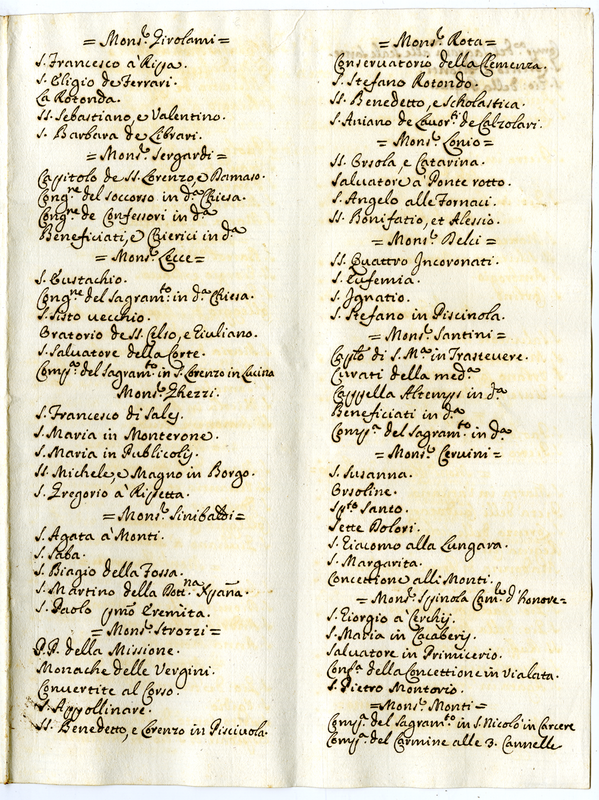 = Mons.r Girolami =
S. Francesco à Ripa.
S. Eligio de Ferrari.
La Rotonda.
SS. Sebastiano, e Valentino.
S. Barbara de Librari.
= Mons.r Sergardi =
Capitolo de SS. Lorenzo, e Damaso.
Cong.ne del soccorso in d.a Chiesa.
Cong.ne de Confessori in d.a
Beneficiati, e Chierici in d.a
= Mons.r Lecce =
S. Eustachio.
Cong.ne del sagram.to in d.a Chiesa.
S. Sisto vecchio.
Oratorio de SS. Celso, e Giuliano.
S. Salvatore della Corte.
Comp.a del sagram.to in S. Lorenzo in Lucina
Mons.r Ghezzi.
S. Francesco di Sales.
S. Maria in Monterone.
S. Maria in Publicolis.
SS. Michele, e Magno in Borgo.
S. Gregorio à Ripetta.
= Mons.r Sinibaldi =
S. Agata à Monti.
S. Saba.
S. Biagio della Fossa.
S. Martino della Dott.na Xpāna.
S. Paolo pmo Eremita.
= Mons.r Strozzi =
P.P. della Missione.
Monache delle Vergini.
Convertite al Corso.
S. Appollinare.
SS. Benedetto, e Lorenzo in Piscivola.
= Mons.r Rota =
Conservatorio della Clemenza.
S. Stefano Rotondo.
SS. Benedetto, e Scholastica.
S. Aniano de Lavor.ti de Calzolari.
= Mons.r Lonio =
SS. Orsola, e Catarina.
Salvatore à Ponte rotto.
S. Angelo alle Fornaci.
SS. Bonifatio, et Alessio.
= Mons.r Belci =
SS. Quattro Incoronati.
S. Eufemia.
S. Ignatio.
S. Stefano in Piscinola.
= Mons.r Santini =
Cap.lo di S. M.a in Trastevere.
Curati della med.a
Cappella Altemps in d.a
Beneficiati in d.a
Comp.a del sagram.to in d.a
= Mons.r Cervini =
S. Susanna.
Orsoline.
Sp.to Santo.
Sette Dolori.
S. Giacomo alla Lungara.
S. Margarita.
Concettione alli Monti.
= Mons.r Spinola Cam.le d'honore =
S. Giorgio a Cerchij.
S. Maria in Cacaberis.
Salvatore in Primicerio.
Conf.a della Concettione in Vialata.
S. Pietro Montorio.
= Mons.r Monti =
Comp.a del Sagram.to in S. Nicolò in Carcere
Comp.a del Carmine alle 3. Cannelle